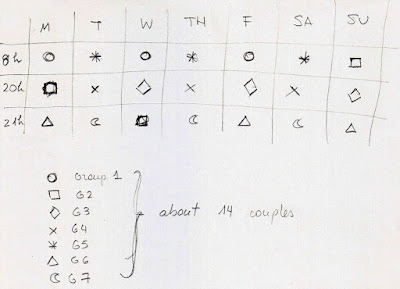 M T W TH F SA SU
8h
20h
21h
Group 1
G2
G3
G4 about 14 couples
G5
G6
G7